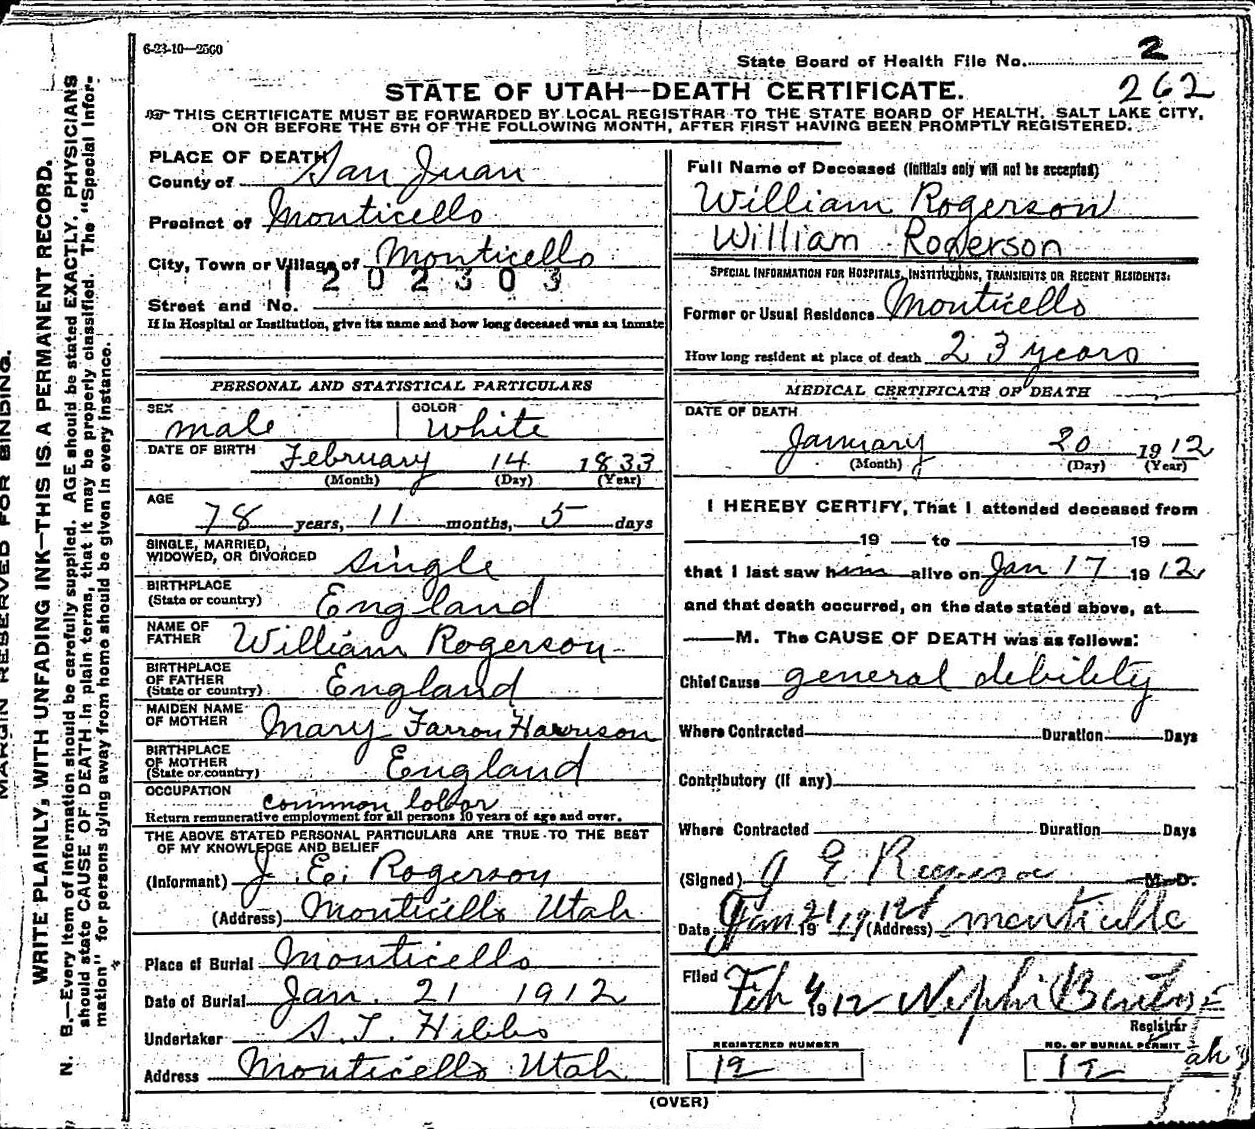 6-23-10—2500
State Board of Health File No. 2
262
STATE OF UTAH—DEATH CERTIFICATE.
THIS CERTIFICATE MUST BE FORWARDED BY LOCAL REGISTRAR TO THE STATE BOARD OF HEALTH, SALT LAKE CITY,
ON OR BEFORE THE 5TH OF THE FOLLOWING MONTH, AFTER FIRST HAVING BEEN PROMPTLY REGISTERED.
PLACE OF DEATH
County of San Juan
Precinct of Monticello
City, Town or Village of Monticello
1202303
Street and No.
If in Hospital or Institution, give its name and how long deceased was an inmate
PERSONAL AND STATISTICAL PARTICULARS
SEX male COLOR White
DATE OF BIRTH February 14 1833
(Month) (Day) (Year)
AGE
78 years, 11 months, 5 days
SINGLE, MARRIED,
WIDOWED, OR DIVORCED single
BIRTHPLACE
(State or country) England
NAME OF
FATHER William Rogerson
BIRTHPLACE
OF FATHER
(State or country) England
MAIDEN NAME
OF MOTHER Mary Farron Harrison
BIRTHPLACE
OF MOTHER
(State or country) England
OCCUPATION
common
Return remunerative employment for all persons 10 years of age and over.
THE ABOVE STATED PERSONAL PARTICULARS ARE TRUE TO THE BEST
OF MY KNOWLEDGE AND BELIEF
(Informant) J. E. Rogerson
(Address) Monticello Utah
Place of Burial Monticello
Date of Burial Jan. 21 1912
Undertaker S. T. Hibbs
Address Monticello Utah
Full Name of Deceased (Initials only will not be accepted)
William Rogerson
William Rogerson
SPECIAL INFORMATION FOR HOSPITALS, INSTITUTIONS, TRANSIENTS OR RECENT RESIDENTS:
Former or Usual Residence Monticello
How long resident at place of death 23 years
MEDICAL CERTIFICATE OF DEATH
DATE OF DEATH
January 20 1912
(Month) (Day) (Year)
I HEREBY CERTIFY, That I attended deceased from
19 to 19
that I last saw him alive on Jan 17 1912
and that death occurred, on the date stated above, at
M. The CAUSE OF DEATH was as follows:
Chief Cause general debility
Where Contracted Duration Days
Contributory (if any)
Where Contracted Duration Days
(Signed) J E M. D.
Date Jan 21 1912 (Address) monticello
Filed Feb 4 1912 Nephi
Registrar
REGISTERED NUMBER
12
NO. OF BURIAL PERMIT
12
(OVER)
MARGIN RESERVED FOR BINDING.
WRITE PLAINLY, WITH UNFADING INK—THIS IS A PERMANENT RECORD.
N. B.—Every item of information should be carefully supplied. AGE should be stated EXACTLY. PHYSICIANS
should state CAUSE OF DEATH in plain terms, that it may be properly classified. The "Special Infor-
mation" for persons dying away from home should be given in every instance.